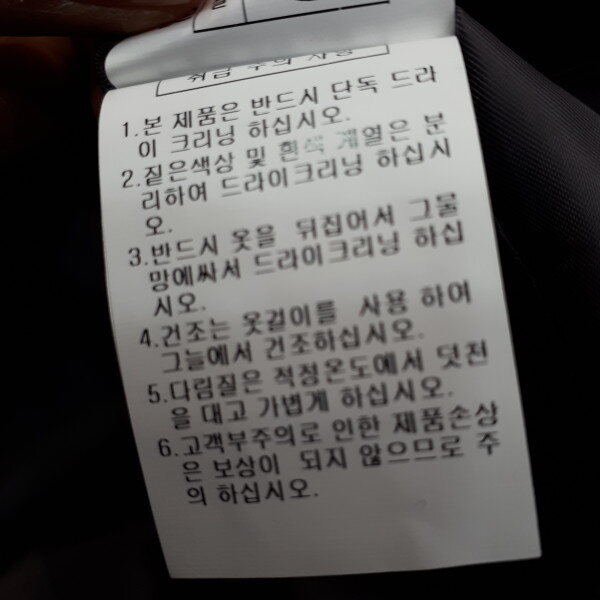 취급 주의 사항
1.본 제품은 반드시 단독 드라
이 크리닝 하십시오.
2.짙은색상 및 흰색 계열은 분
리하여 드라이크리닝 하십시
오.
3.반드시 옷을 뒤집어서 그물
망에싸서 드라이크리닝 하십
시오.
4.건조는 옷걸이를 사용 하여
그늘에서 건조하십시오.
5.다림질은 적정온도에서 덧천
을 대고 가볍게 하십시오.
6.고객부주의로 인한 제품손상
은 보상이 되지 않으므로 주
의 하십시오.